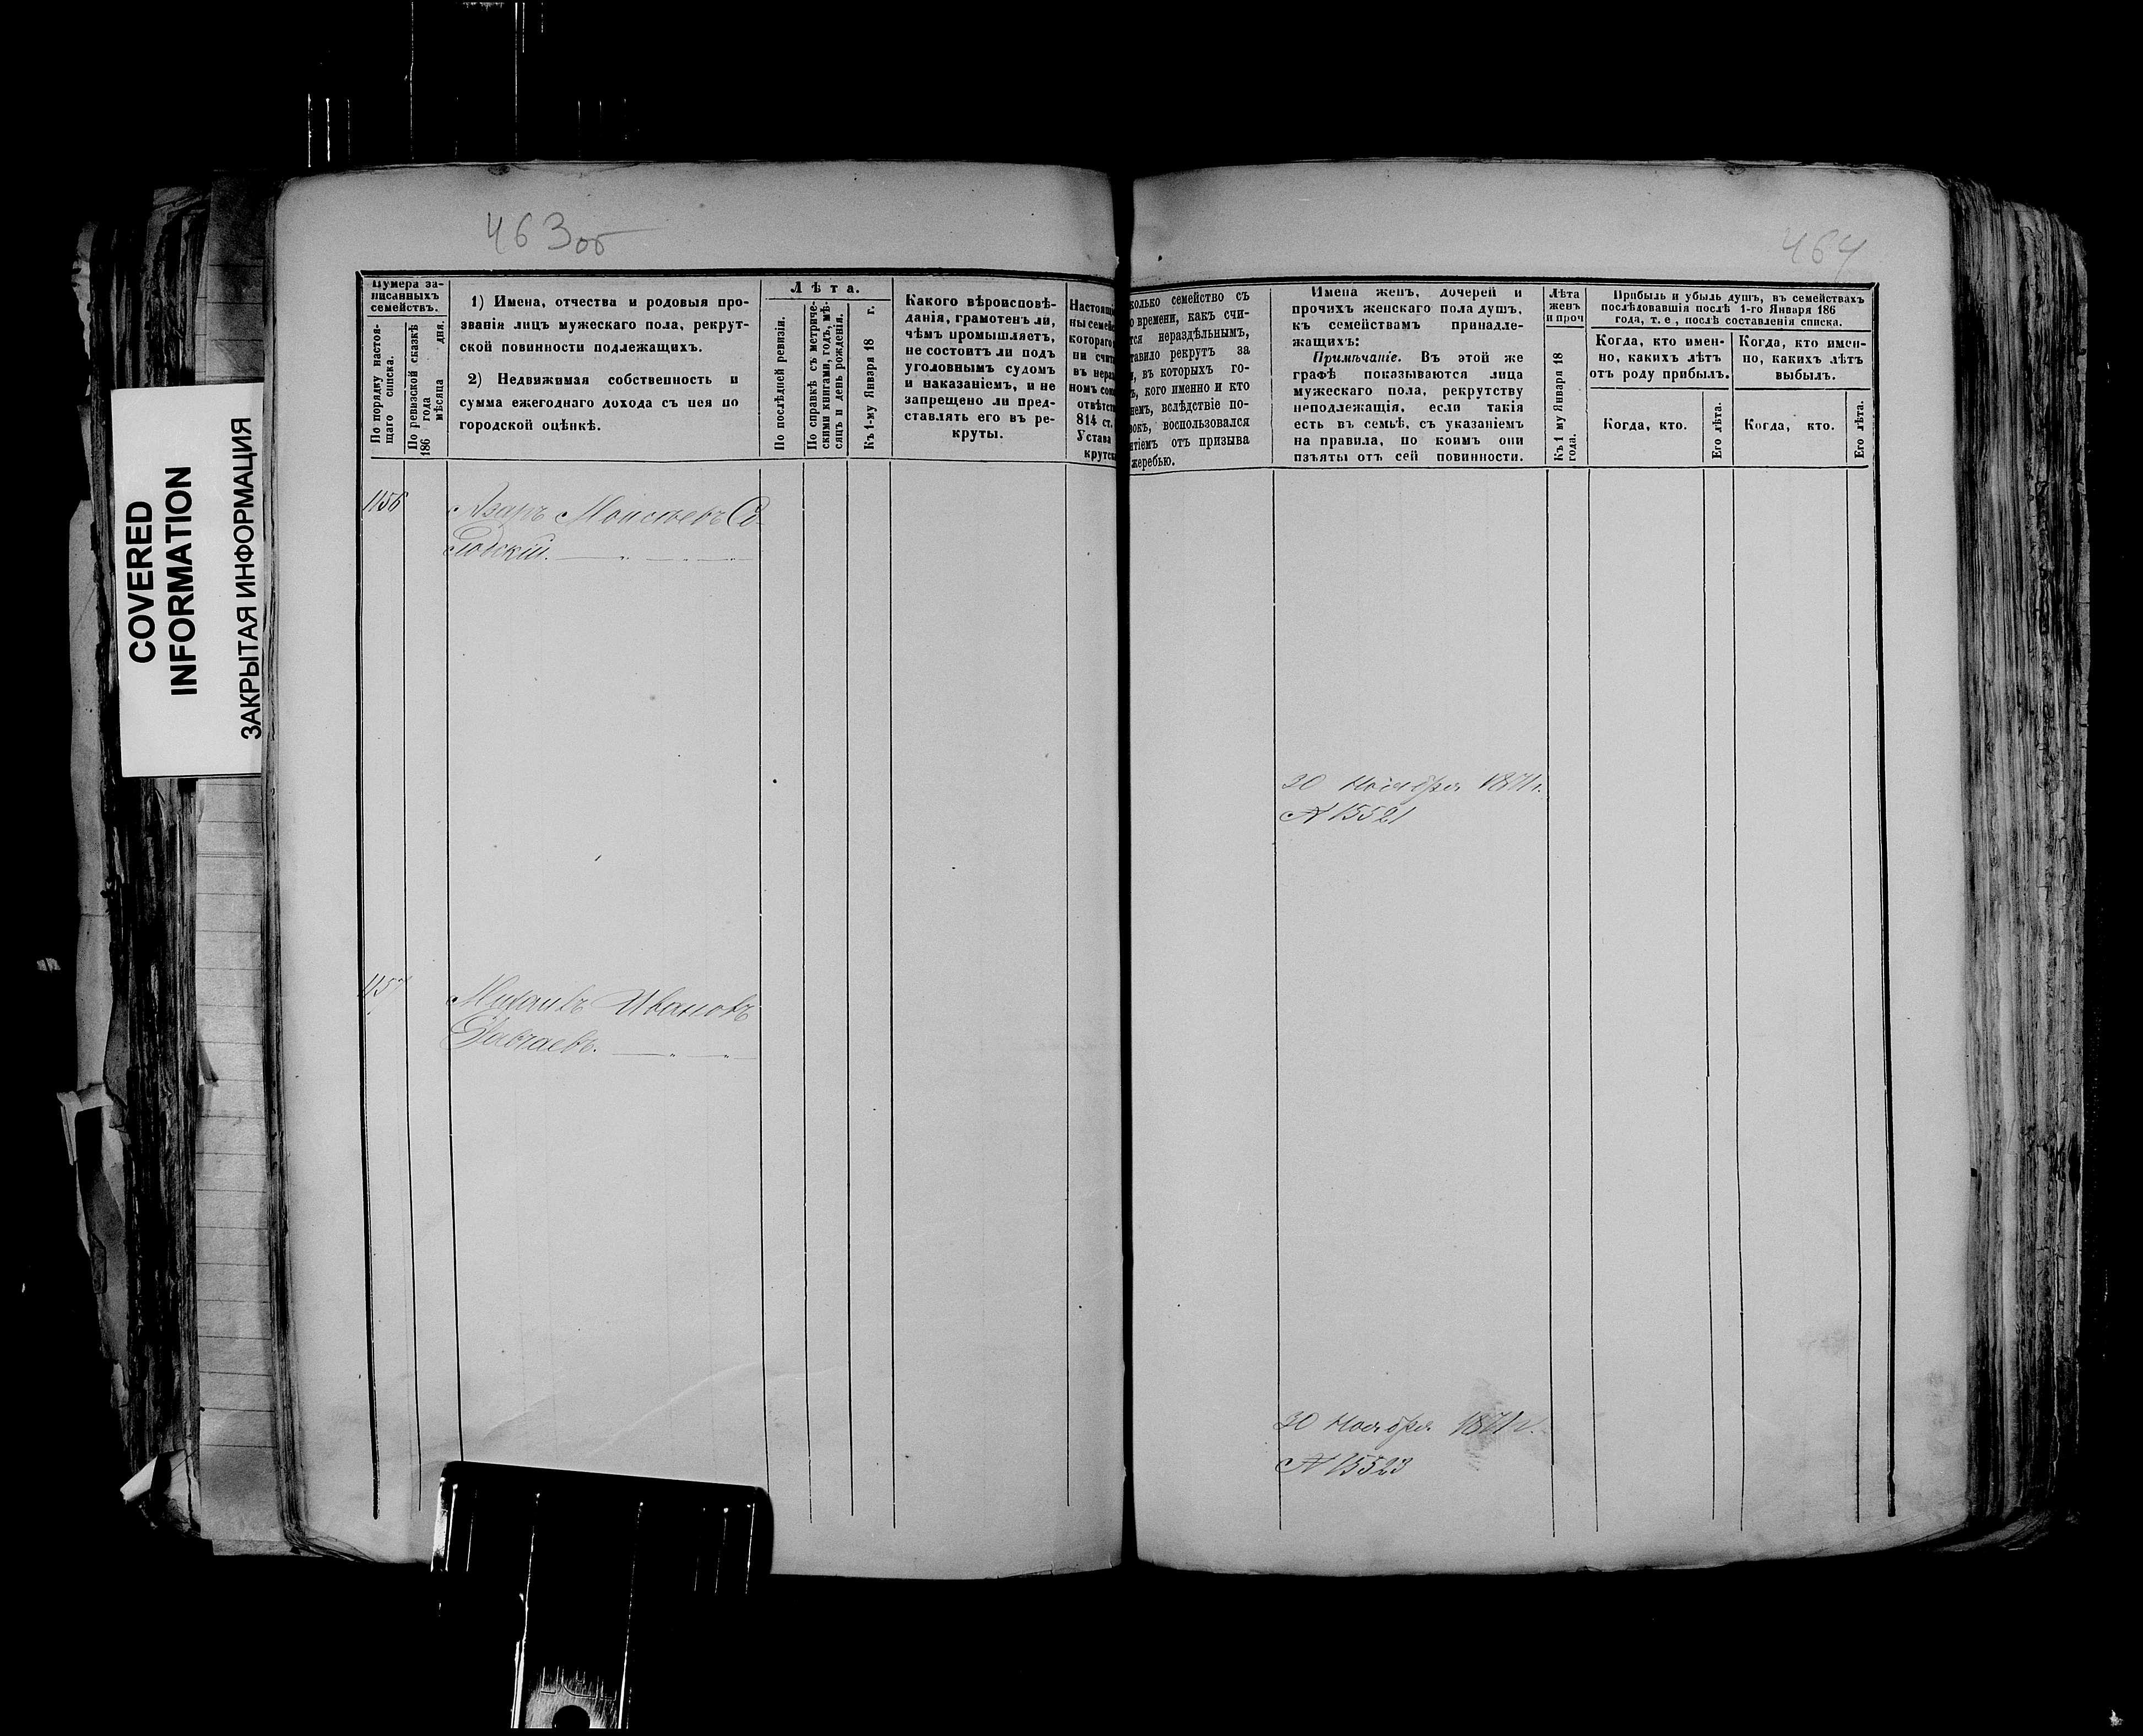 463об
464
COVERED
INFORMATION
ЗАКРЫТАЯ ИНФОРМАЦИЯ
Нумера за-
писанныхъ
семействъ.
По порядку настоя-
щаго списка.
По ревизской сказкѣ
186 года мѣсяца дня.
1) Имена, отчества и родовыя про-
званія лицъ мужескаго пола, рекрут-
ской повинности подлежащихъ.
2) Недвижимая собственность и
сумма ежегоднаго дохода съ нея по
городской оцѣнкѣ.
Лѣта.
По послѣдней ревизіи.
По справкѣ съ метриче-
скими книгами, годъ, мѣ-
сяцъ и день рожденія.
Къ 1-му Января 18 г.
Какого вѣроисповѣ-
данія, грамотенъ ли,
чѣмъ промышляетъ,
не состоитъ ли подъ
уголовнымъ судомъ
и наказаніемъ, и не
запрещено ли пред-
ставлять его въ ре-
круты.
Настоящі
ны семей
котораго
ни счит
въ нераз
номъ сос
отвѣтст
814 ст.
Устава
крутск
колько семейство съ
о времени, какъ счи-
тся нераздѣльнымъ,
тавило рекрутъ за
и, въ которыхъ го-
ъ, кого именно и кто
немъ, вслѣдствіе по-
вокъ, воспользовался
тіемъ отъ призыва
жеребью.
Имена женъ, дочерей и
прочихъ женскаго пола душъ,
къ семействамъ принадле-
жащихъ:
Примѣчаніе. Въ этой же
графѣ показываются лица
мужескаго пола, рекрутству
неподлежащія, если такія
есть въ семьѣ, съ указаніемъ
на правила, по коимъ они
изъяты отъ сей повинности.
Лѣта
женъ
и проч
Къ 1 му Января 18
года.
Прибыль и убыль душъ, въ семействахъ
послѣдовавшія послѣ 1-го Января 186
года, т. е., послѣ составленія списка.
Когда, кто имен-
но, какихъ лѣтъ
отъ роду прибылъ.
Когда, кто имен-
но, какихъ лѣтъ
выбылъ.
Когда, кто.
Его лѣта.
Когда, кто.
Его лѣта.
1156
Азаръ Моисѣевъ Сло-
бодскій.
30 Ноября 1871 г.
№ 15521
Михаилъ Ивановъ
30 Ноября 1871 г.
№ 15523